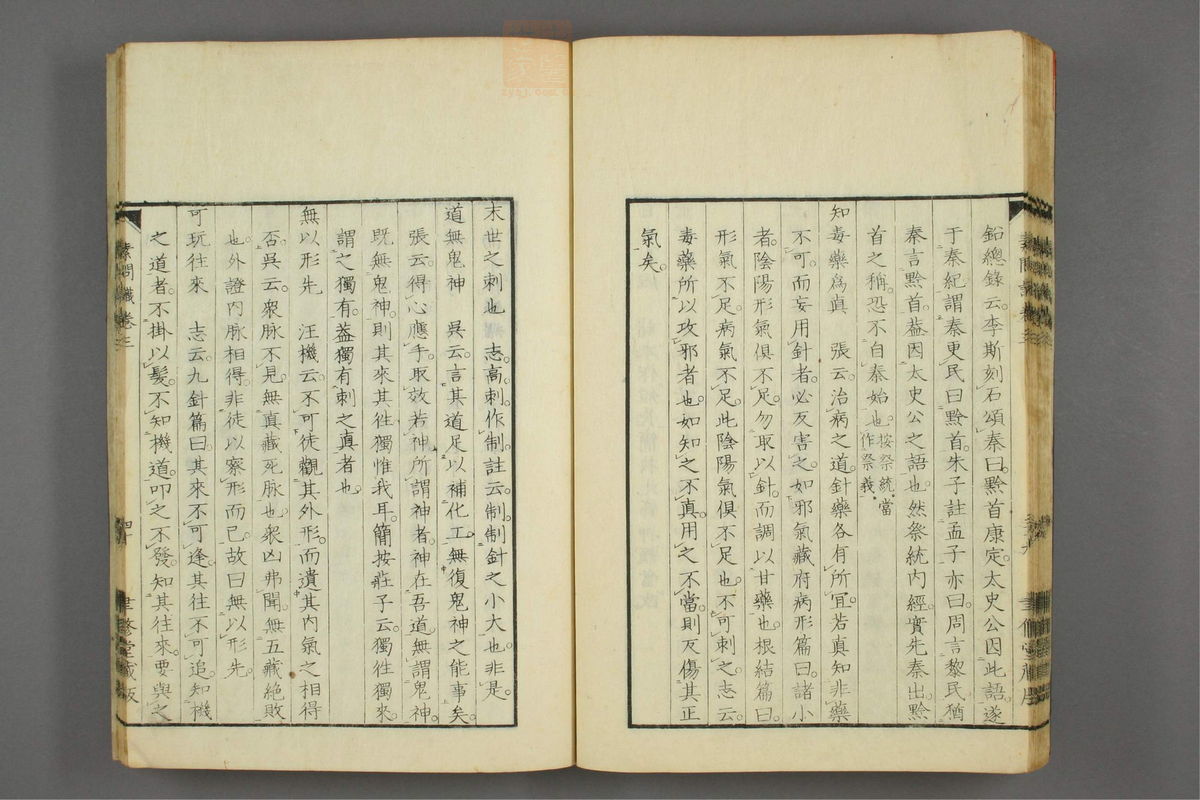 鉛總錄云李斯刻石頌秦曰黔首康定太史公因此語遂
于秦紀謂秦更民曰黔首朱子註孟子亦曰周言黎民猶
秦言黔首葢因太史公之語也然祭統內經實先秦出黔
首之稱恐不自秦始也按祭統當作祭義
知毒藥爲眞 張云治病之道針藥各有所宜若真知非藥
不可而妄用針者必反害之如邪氣藏府病形篇曰諸小
者陰陽形氣俱不足勿取以針而調以甘藥也根結篇曰
形氣不足病氣不足此陰陽氣俱不足也不可刺之志云
毒藥所以攻邪者也如知之不真用之不當則反傷其正
氣矣
末世之刺也 志高刺作制註云制制針之小大也非是
道無鬼神 吳云言其道足以補化工無復鬼神之能事矣
張云得心應手取效若神所謂神者神在吾道無謂鬼神
既無鬼神則其來其徃獨惟我耳簡按莊子云獨徃獨來
謂之獨有葢獨有刺之真者也
無以形先 汪機云不可徒觀其外形而遺其內氣之相得
否吳云衆脉不見無真藏死脉也衆凶弗聞無五藏絕敗
也外證內脉相得非徒以察形而已故曰無以形先
可玩往來 志云九針篇曰其來不可逢其往不可追知機
之道者不掛以髮不知機道叩之不發知其往來要與之
素問識卷三
四十
聿修堂藏板